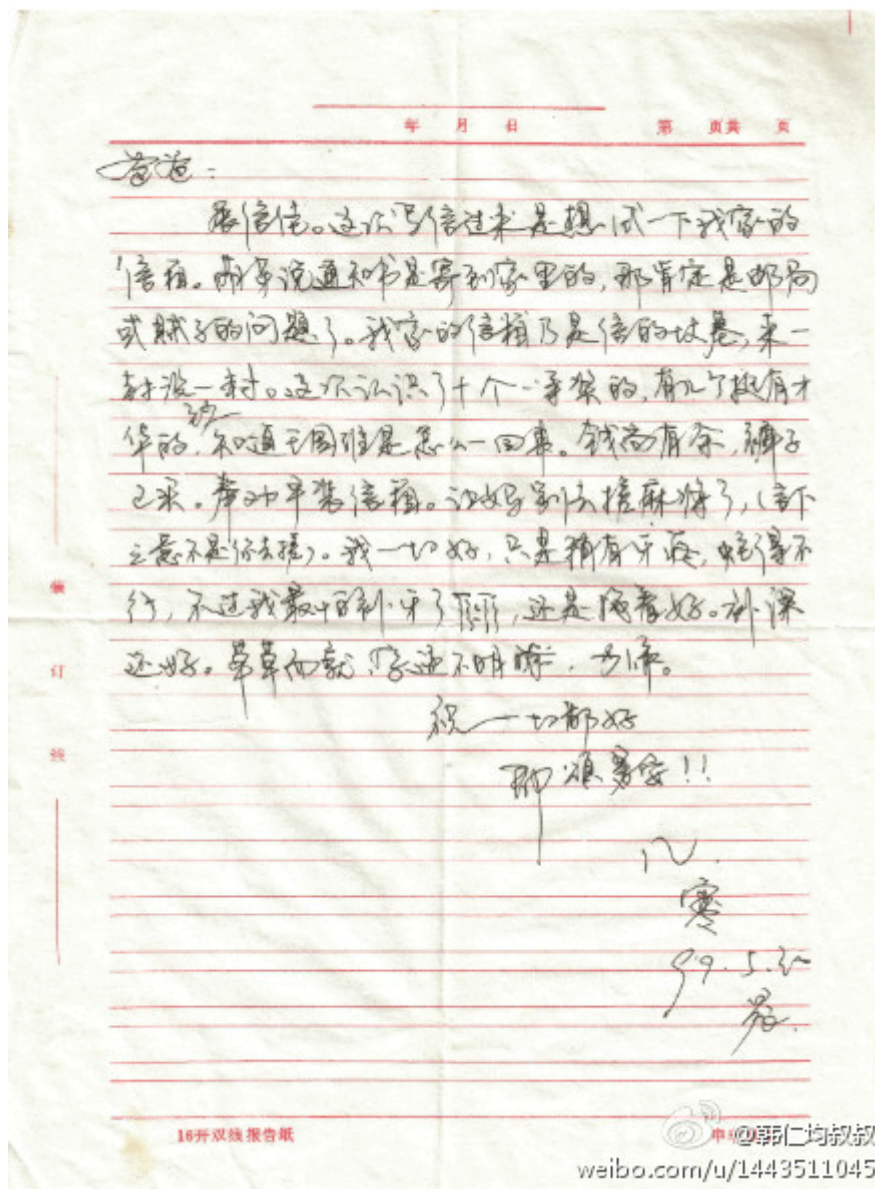 年 月 日 第 页共 页
爸爸：
展信佳。这次写信过来是想试一下我家的
信箱。萌芽说通知书是寄到家里的，那肯定是邮局
或贼子的问题了。我家的信箱乃是信的坟墓，来一
封没一封。这次认识了十个一等奖的，有几个挺有才
华的，知道王国维是怎么一回事。钱尚有余，裤子
已买。让妈别去搓麻将了，（言下
之意不是你去搓）。我一切好，只是稍有牙疼，
行，不过我最怕补牙了，还是
还好。草草而就，字迹不明
祝一切都好
即颂夏安！！
儿
寒
99.5.30
晨
装
订
线
16开双线报告纸
@韩仁均叔叔
weibo.com/u/1443511045